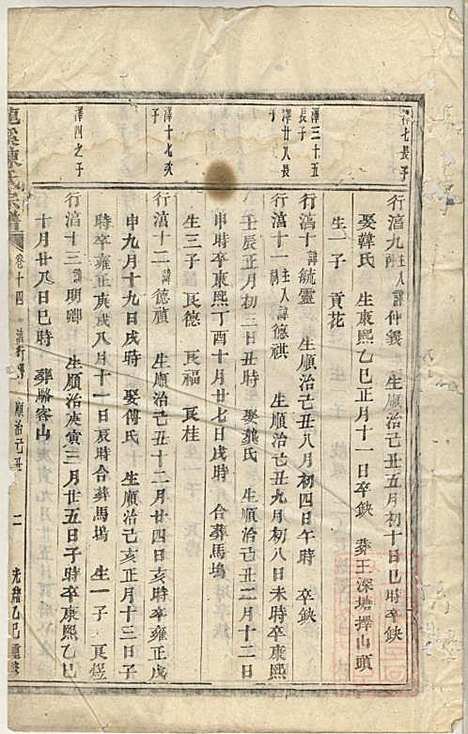 澤七長子
行滈九 主人 諱仲義 生順治己丑五月初十日巳時卒缺
娶韓氏 生康熙乙巳正月十一日卒缺 葬王深塘擇山頭
生一子 貢花
澤三十五長子
行滈十 諱毓靈 生順治己丑八月初四日午時 卒缺
澤廿八長子
行滈十一 主人 諱德祺 生順治己丑九月初八日未時卒康熙
壬辰正月初三日丑時 娶龔氏 生順治己丑二月十二日
申時卒康熙丁酉十月廿七日戌時 合葬馬塢
生三子 良德 良福 良桂
澤十七次子
行滈十二 諱德禎 生順治己丑十二月廿四日亥時卒雍正戊
申九月十九日戌時 娶傅氏 生順治己亥正月十三日子
時卒雍正庚戌八月十一日辰時合葬馬塢 生一子 良煜
澤四之子
行滈十三 諱明卿 生順治庚寅三月廿五日子時卒康熙乙巳
十月廿八日巳時 葬駱客山
陳氏宗譜 卷十四 順治己丑 二 光緒乙巳重修